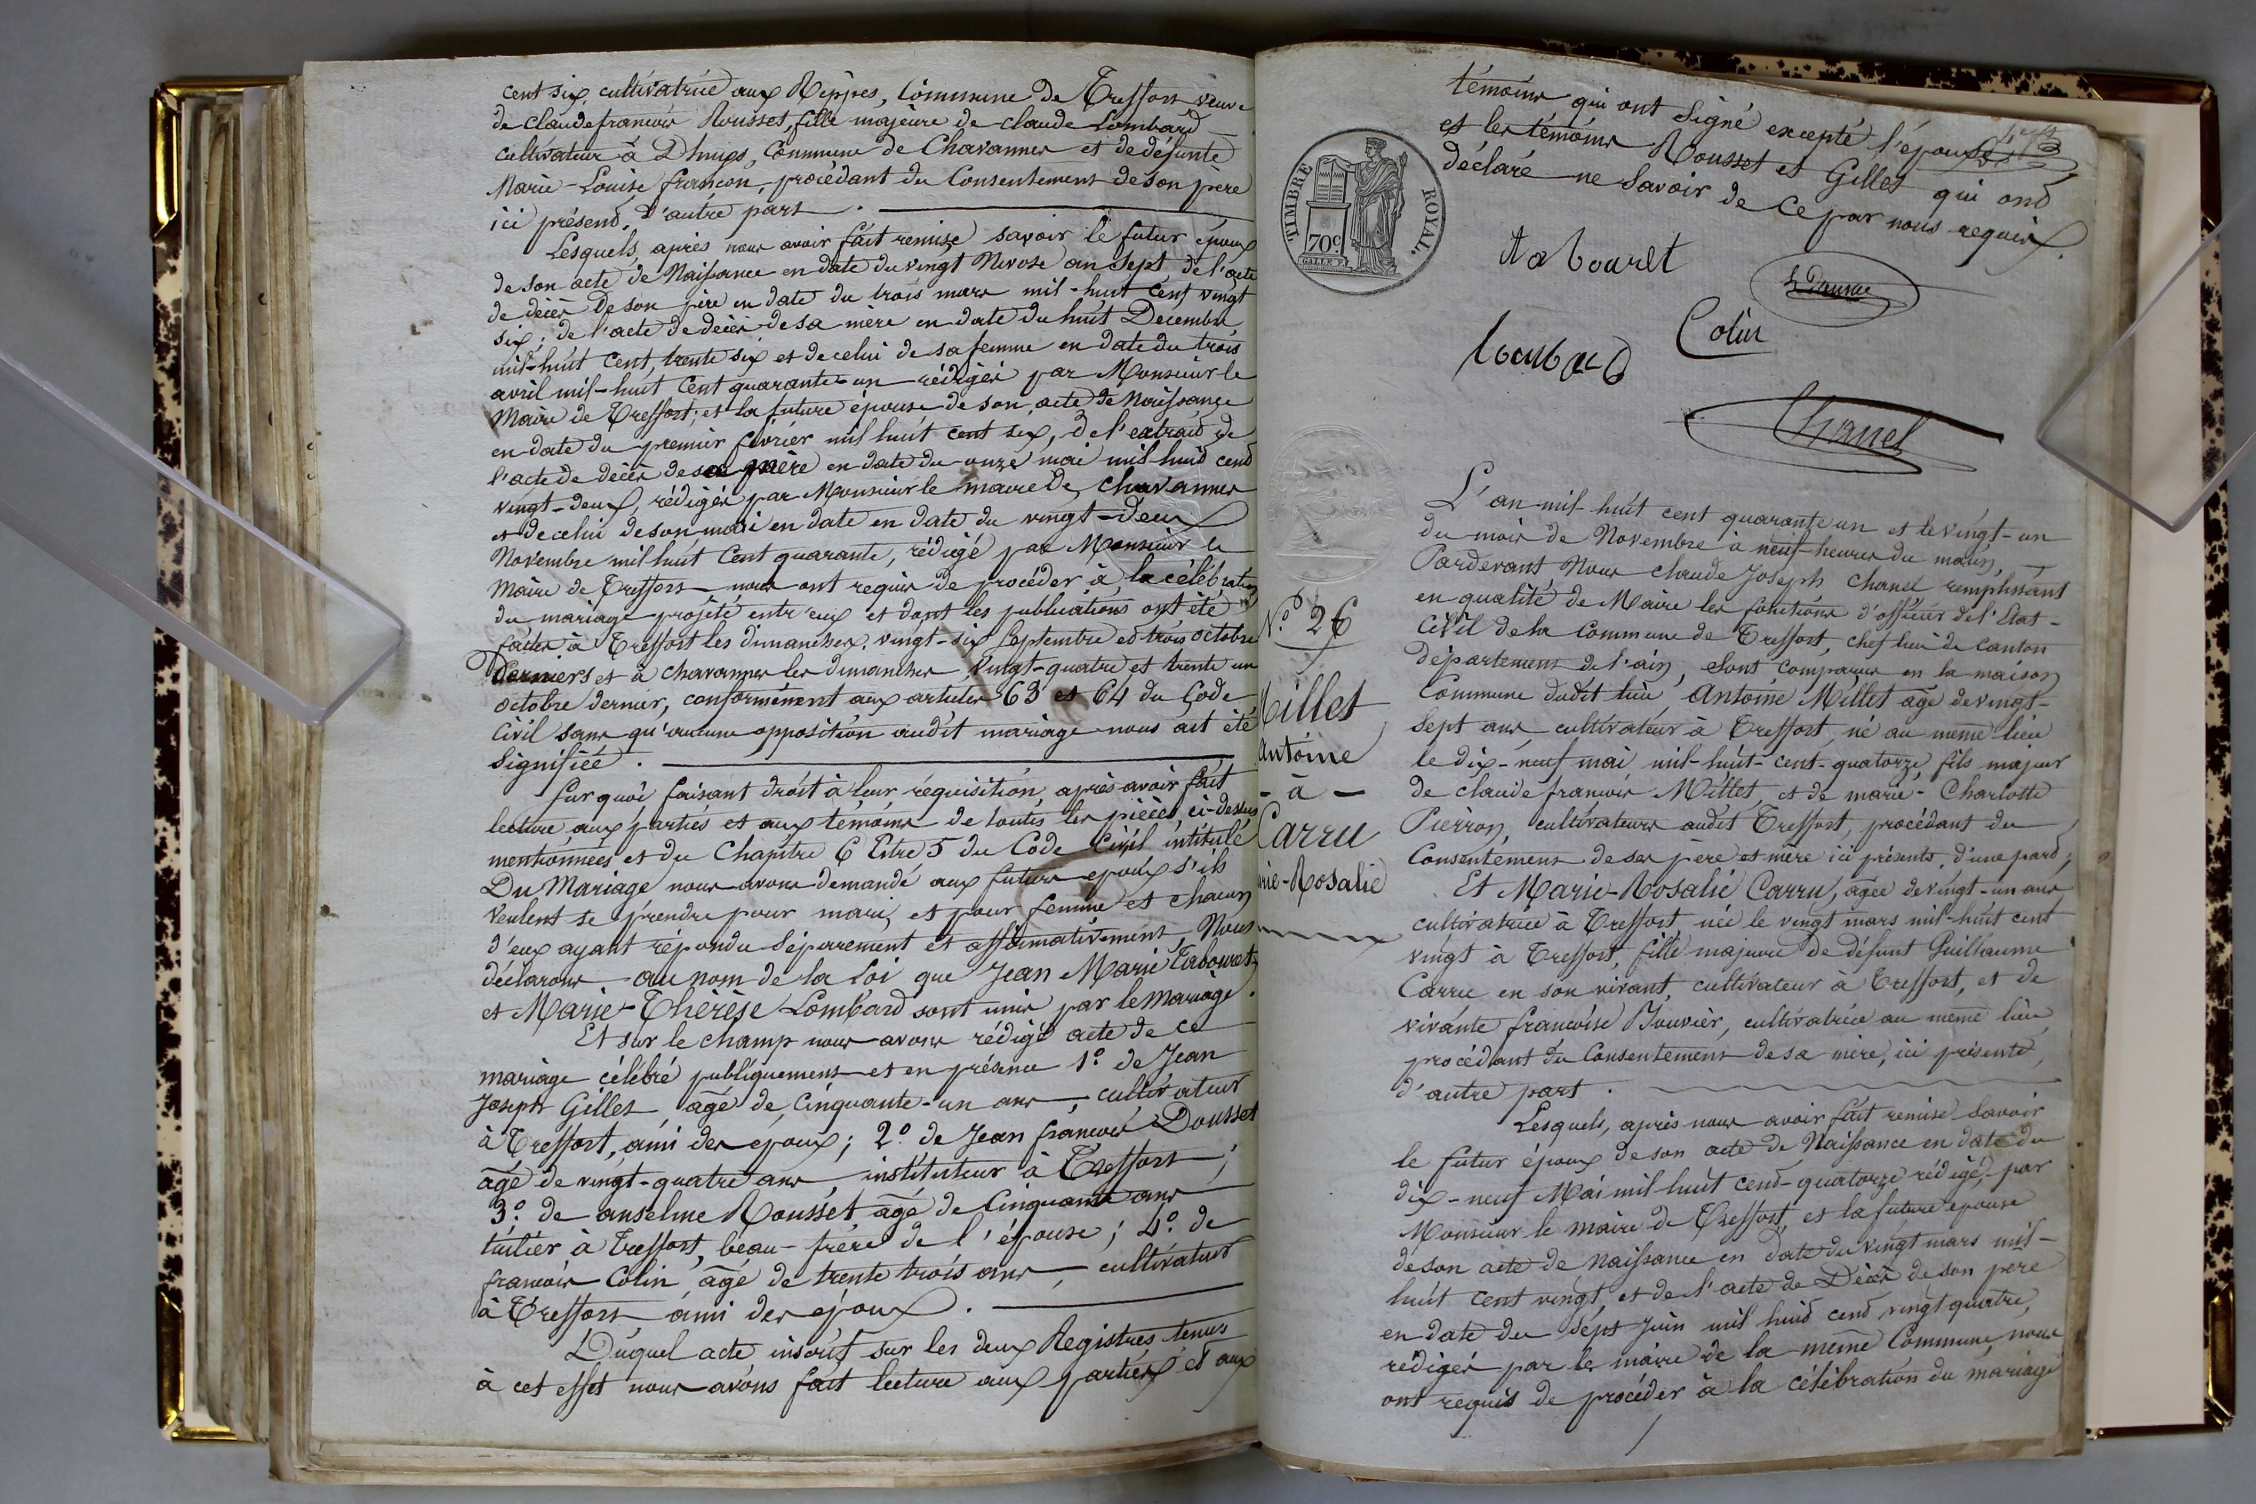 cent six, cultivatrice aux Reppes, Commune de Treffort veuve
de claude francois Rousset, fille majeure de claude Lombard
cultivateur à Dhuys, Commune de Chavannes et de défunte
Marie-Louise francon, procédant du Consentement de son père
ici présend, d'autre part.
Lesquels, après nous avoir fait remise savoir le futur époux
de son acte de Naissance en date du vingt Nivose an sept, de l'acte
de décès de son père en date du trois mars mil-huit cent vingt
six; de l'acte de décès de sa mère en date du huit Decembre
mil-huit cent, trente six et de celui de sa femme en date du trois
avril mil-huit Cent quarante-un rédigés par Monsieur le
Maire de Treffort; et la future épouse de son acte de Naissance
en date du premier février mil huit cent six, de l'extraid de
l'acte de décès de sa mère en date du onze mai mil huid cend
vingt-deux, rédigés par Monsieur le maire de Chavannes
et de celui de son mari en date en date du vingt-deux
Novembre mil huit Cent quarante, rédigé par Monsieur le
Maire de Treffort nous ont requis de procéder à la célébration
du mariage projeté entr'eux et dont les publications ont été
faites à Treffort les dimanches vingt-six Septembre et trois octobre
Derniers et à chavannes les dimanches vingt-quatre et trente un
octobre dernier, conformément aux articles 63 et 64 du Code
Civil sans qu'aucune opposition audit mariage nous ait été
Signifiée.
Sur quoi faisant droit à leur réquisition, après avoir fait
lecture aux parties et aux témoins de toutes les pièces, ci-dessus
mentionnées et du Chapitre 6 titre 5 du Code Civil intitulé
Du Mariage nous avons demandé aux futurs epoux s'ils
veulent se prendre pour mari, et pour femme et chacun
d'eux ayant répondu séparement et affirmativement, Nous
déclarons au nom de la loi que Jean Marie Tabouret
et Marie-Thérèse Lombard sont unis par le Mariage.
Et sur le champ nous avons rédigé acte de ce
mariage célébré publiquement et en présence 1.° de Jean
Joseph Gillet, agé de cinquante-un ans, cultivateur
à Treffort, ami des epoux; 2.° de Jean francois Dousset
agé de vingt-quatre ans, instituteur à Treffort;
3.° de anselme Rousset agé de Cinquante ans
tuilier à Treffort, beau-frère de l'épouse; 4.° de
francois Colin, agé de trente trois ans, cultivateur
à Treffort ami des epoux.
Duquel acte inscrit sur les deux Registres tenus
à cet effet nous avons fait lecture aux parties et aux
témoins qui ont Signé excepté l'épouse
et les témoins Rousset et Gillet qui ond
déclaré ne Savoir de ce par nous requis.
TIMBRE ROYAL
70c
Tabouret
Colin
Lombard
Chanel
N.° 26
Millet
Antoine
- à -
Carru
Marie-Rosalie
L'an mil huit cent quarante un et le vingt-un
du mois de Novembre à neuf heures du matin,
Pardevant Nous claude Joseph Chanel remplissant
en qualité de Maire les fonctions d'officier de l'Etat-
Civil de la Commune de Treffort, chef lieu de canton
département de l'ain, Sont comparus en la maison
Commune dudit lieu, Antoine Millet agé de vingt-
sept ans, cultivateur à Treffort, né au même lieu
le dix-neuf mai mil-huit-cent-quatorze, fils majeur
de claude francois Millet, et de marie-Charlotte
Pierron, cultivateurs audit Treffort, procédant du
Consentement de ses père et mère ici présents, d'une pard;
Et Marie-Rosalie Carru, agée de vingt-un ans
cultivatrice à Treffort, née le vingt mars mil-huit cent
vingt à Treffort, fille majeure de défunt Guillaume
Carru en son vivant, cultivateur à Treffort, et de
vivante francoise Bouvier, cultivatrice au même lieu
procédant du Consentement de sa mère, ici présente,
d'autre part.
Lesquels, après nous avoir fait remise Savoir
le futur époux de son acte de Naissance en date du
dix-neuf Mai mil huit cend-quatorze rédigé, par
Monsieur le maire de Treffort, et la future epouse
de son acte de naissance en date du vingt mars mil-
huit cent vingt, et de l'acte de Décès de son pere
en date du sept Juin mil huid cend vingt quatre,
rédigés par le maire de la même Commune, nous
ont requis de procéder à la célébration du mariage